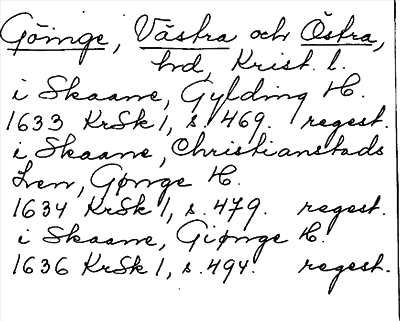 Göinge, Västra och Östra,
hd, Krist. l.
i Skaane, Gylding H.
1633 KrSk 1, s. 469. regest.
i Skaane, Christianstads
Len, Gønge H.
1634 KrSk 1, s. 479. regest.
i Skaane, Giønge H.
1636 KrSk 1, s. 494. regest.